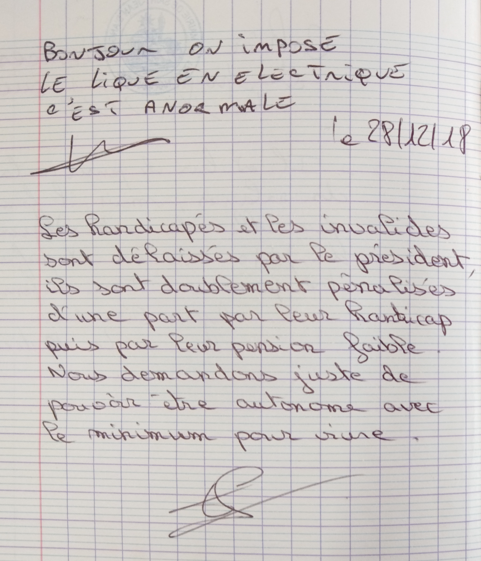 BONJOUR ON IMPOSE
LE LIQUE EN ELECTRIQUE
C'EST ANORMALE
le 28/12/18
Les handicapés et les invalides
sont délaissés par le président,
ils sont doublement pénalisés
d'une part par leur handicap
puis par leur pension faible.
Nous demandons juste de
pouvoir être autonome avec
le minimum pour vivre.